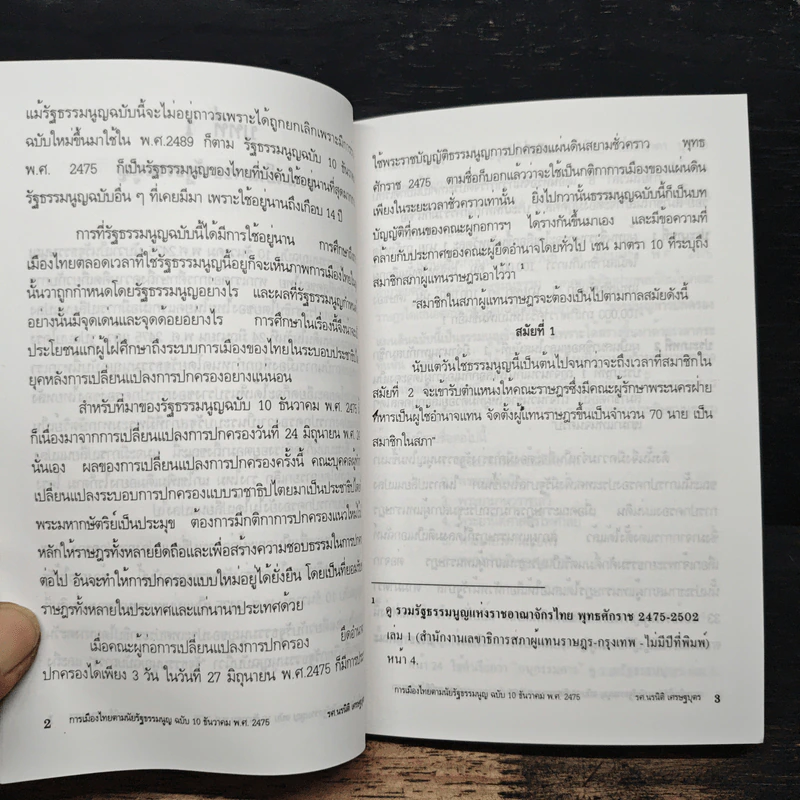 แม้รัฐธรรมนูญฉบับนี้จะไม่อยู่ถาวรเพราะได้ถูกยกเลิกเพราะมีการ
ฉบับใหม่ขึ้นมาใช้ใน พ.ศ.2489 ก็ตาม รัฐธรรมนูญฉบับ 10 ธันวาคม
พ.ศ. 2475 ก็เป็นรัฐธรรมนูญของไทยที่บังคับใช้อยู่นานที่สุด
รัฐธรรมนูญฉบับอื่น ๆ ที่เคยมีมา เพราะใช้อยู่นานถึงเกือบ 14 ปี
การที่รัฐธรรมนูญฉบับนี้ได้มีการใช้อยู่นาน การศึกษาถึง
เมืองไทยตลอดเวลาที่ใช้รัฐธรรมนูญนี้อยู่ก็จะเห็นภาพการเมืองไทยใน
นั้นว่าถูกกำหนดโดยรัฐธรรมนูญอย่างไร และผลที่รัฐธรรมนูญกำหนด
อย่างนั้นมีจุดเด่นและจุดด้อยอย่างไร การศึกษาในเรื่องนี้จึง
ประโยชน์แก่ผู้ใฝ่ศึกษาถึงระบบการเมืองของไทยในระบอบประชาธิป
ยุคหลังการเปลี่ยนแปลงการปกครองอย่างแนนอน
สำหรับที่มาของรัฐธรรมนูญฉบับ 10 ธันวาคม พ.ศ. 2475
ก็เนื่องมาจากการเปลี่ยนแปลงการปกครองวันที่ 24 มิถุนายน พ.ศ.
นั่นเอง ผลของการเปลี่ยนแปลงการปกครองครั้งนี้ คณะบุคคลผู้
เปลี่ยนแปลงระบอบการปกครองแบบราชาธิปไตยมาเป็นประชาธิปไต
พระมหากษัตริย์เป็นประมุข ต้องการมีกติกาการปกครองแนวใหม่
หลักให้ราษฎรทั้งหลายยึดถือและเพื่อสร้างความชอบธรรมในการ
ต่อไป อันจะทำให้การปกครองแบบใหม่อยู่ได้ยั่งยืน โดยเป็นที่ยอมรับ
ราษฎรทั้งหลายในประเทศและแก่นานาประเทศด้วย
เมื่อคณะผู้ก่อการเปลี่ยนแปลงการปกครอง ยึดอำนาจ
ปกครองได้เพียง 3 วัน ในวันที่ 27 มิถุนายน พ.ศ.2475 ก็มีการ
2 การเมืองไทยตามนัยรัฐธรรมนูญ ฉบับ 10 ธันวาคม พ.ศ. 2475 รศ.นรนิติ เศรษฐบุตร
ใช้พระราชบัญญัติธรรมนูญการปกครองแผ่นดินสยามชั่วคราว พุทธ
ศักราช 2475 ตามชื่อก็บอกแล้วว่าจะใช้เป็นกติกาการเมืองของแผ่นดิน
เพียงในระยะเวลาชั่วคราวเท่านั้น ยิ่งไปกว่านั้นธรรมนูญฉบับนี้ก็เป็นบท
บัญญัติที่คนของคณะผู้ก่อการฯ ได้ร่างกันขึ้นมาเอง และมีข้อความที่
คล้ายกับประกาศของคณะผู้ยึดอำนาจโดยทั่วไป เช่น มาตรา 10 ที่ระบุถึง
สมาชิกสภาผู้แทนราษฎรเอาไว้ว่า 1
"สมาชิกในสภาผู้แทนราษฎรจะต้องเป็นไปตามกาลสมัยดังนี้
สมัยที่ 1
นับแต่วันใช้ธรรมนูญนี้เป็นต้นไปจนกว่าจะถึงเวลาที่สมาชิกใน
สมัยที่ 2 จะเข้ารับตำแหน่งให้คณะราษฎรซึ่งมีคณะผู้รักษาพระนครฝ่าย
ทหารเป็นผู้ใช้อำนาจแทน จัดตั้งผู้แทนราษฎรขึ้นเป็นจำนวน 70 นาย เป็น
สมาชิกในสภา"
1
ดู รวมรัฐธรรมนูญแห่งราชอาณาจักรไทย พุทธศักราช 2475-2502
เล่ม 1 (สำนักงานเลขาธิการสภาผู้แทนราษฎร-กรุงเทพ -ไม่มีปีที่พิมพ์)
หน้า 4.
การเมืองไทยตามนัยรัฐธรรมนูญ ฉบับ 10 ธันวาคม พ.ศ. 2475 รศ.นรนิติ เศรษฐบุตร 3